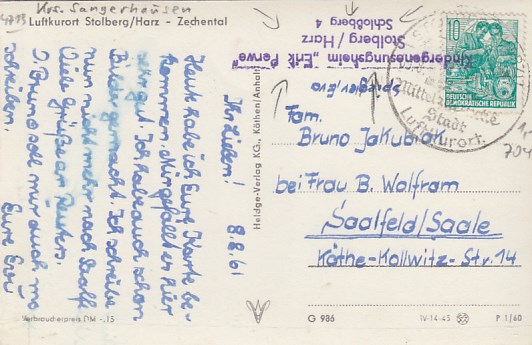 Krs. Sangerhausen
4713
Luftkurort Stolberg/Harz - Zechental
Ihr Lieben! 8.8.61
Heut habe ich Eure Karte be-
kommen. Mir gefällt es hier
sehr gut. Ich habe auch schon
Bilder gemacht. Ich schreibe
nun nicht mehr nach Saalf.
Viele Grüße an
D. Bruno soll mir auch mal
schreiben. Eure Evi
Verbraucherpreis DM -,15
Heldge-Verlag KG., Köthen/Anhalt
Kindergenesungsheim „Erik Perwe"
Stolberg / Harz
Schloßberg 4
Spiegler, Eva
10
DEUTSCHE
DEMOKRATISCHE REPUBLIK
Stadt
Luftkurort.
704
Fam.
Bruno Jakubick
bei Frau B. Wolfram
Saalfeld/Saale
Käthe-Kollwitz-Str. 14
G 986
IV-14-45
P 1/60